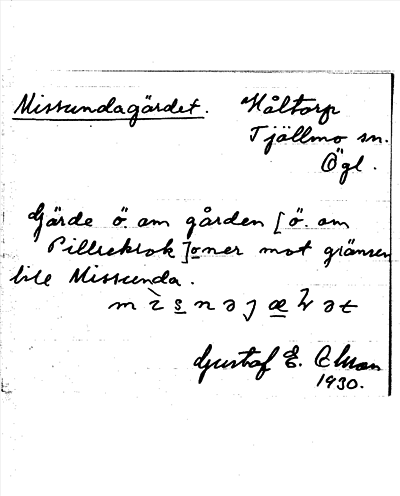 Missundagärdet. Håltorp
Tjällmo sn.
Ögl.
Gärde ö. om gården [ö. om
Pillrekrok] oner mot gränsen
till Missunda.
Gustaf E.
1930.